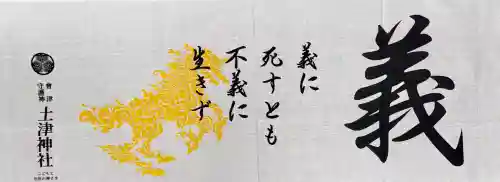 義
義に
死すとも
不義に
生きず
會津
守護神
土津神社
こどもと